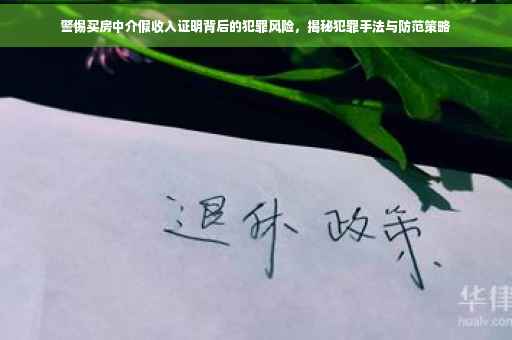 警惕买房中介假收入证明背后的犯罪风险，揭秘犯罪手法与防范策略
退休 政策
华律
hualv.com